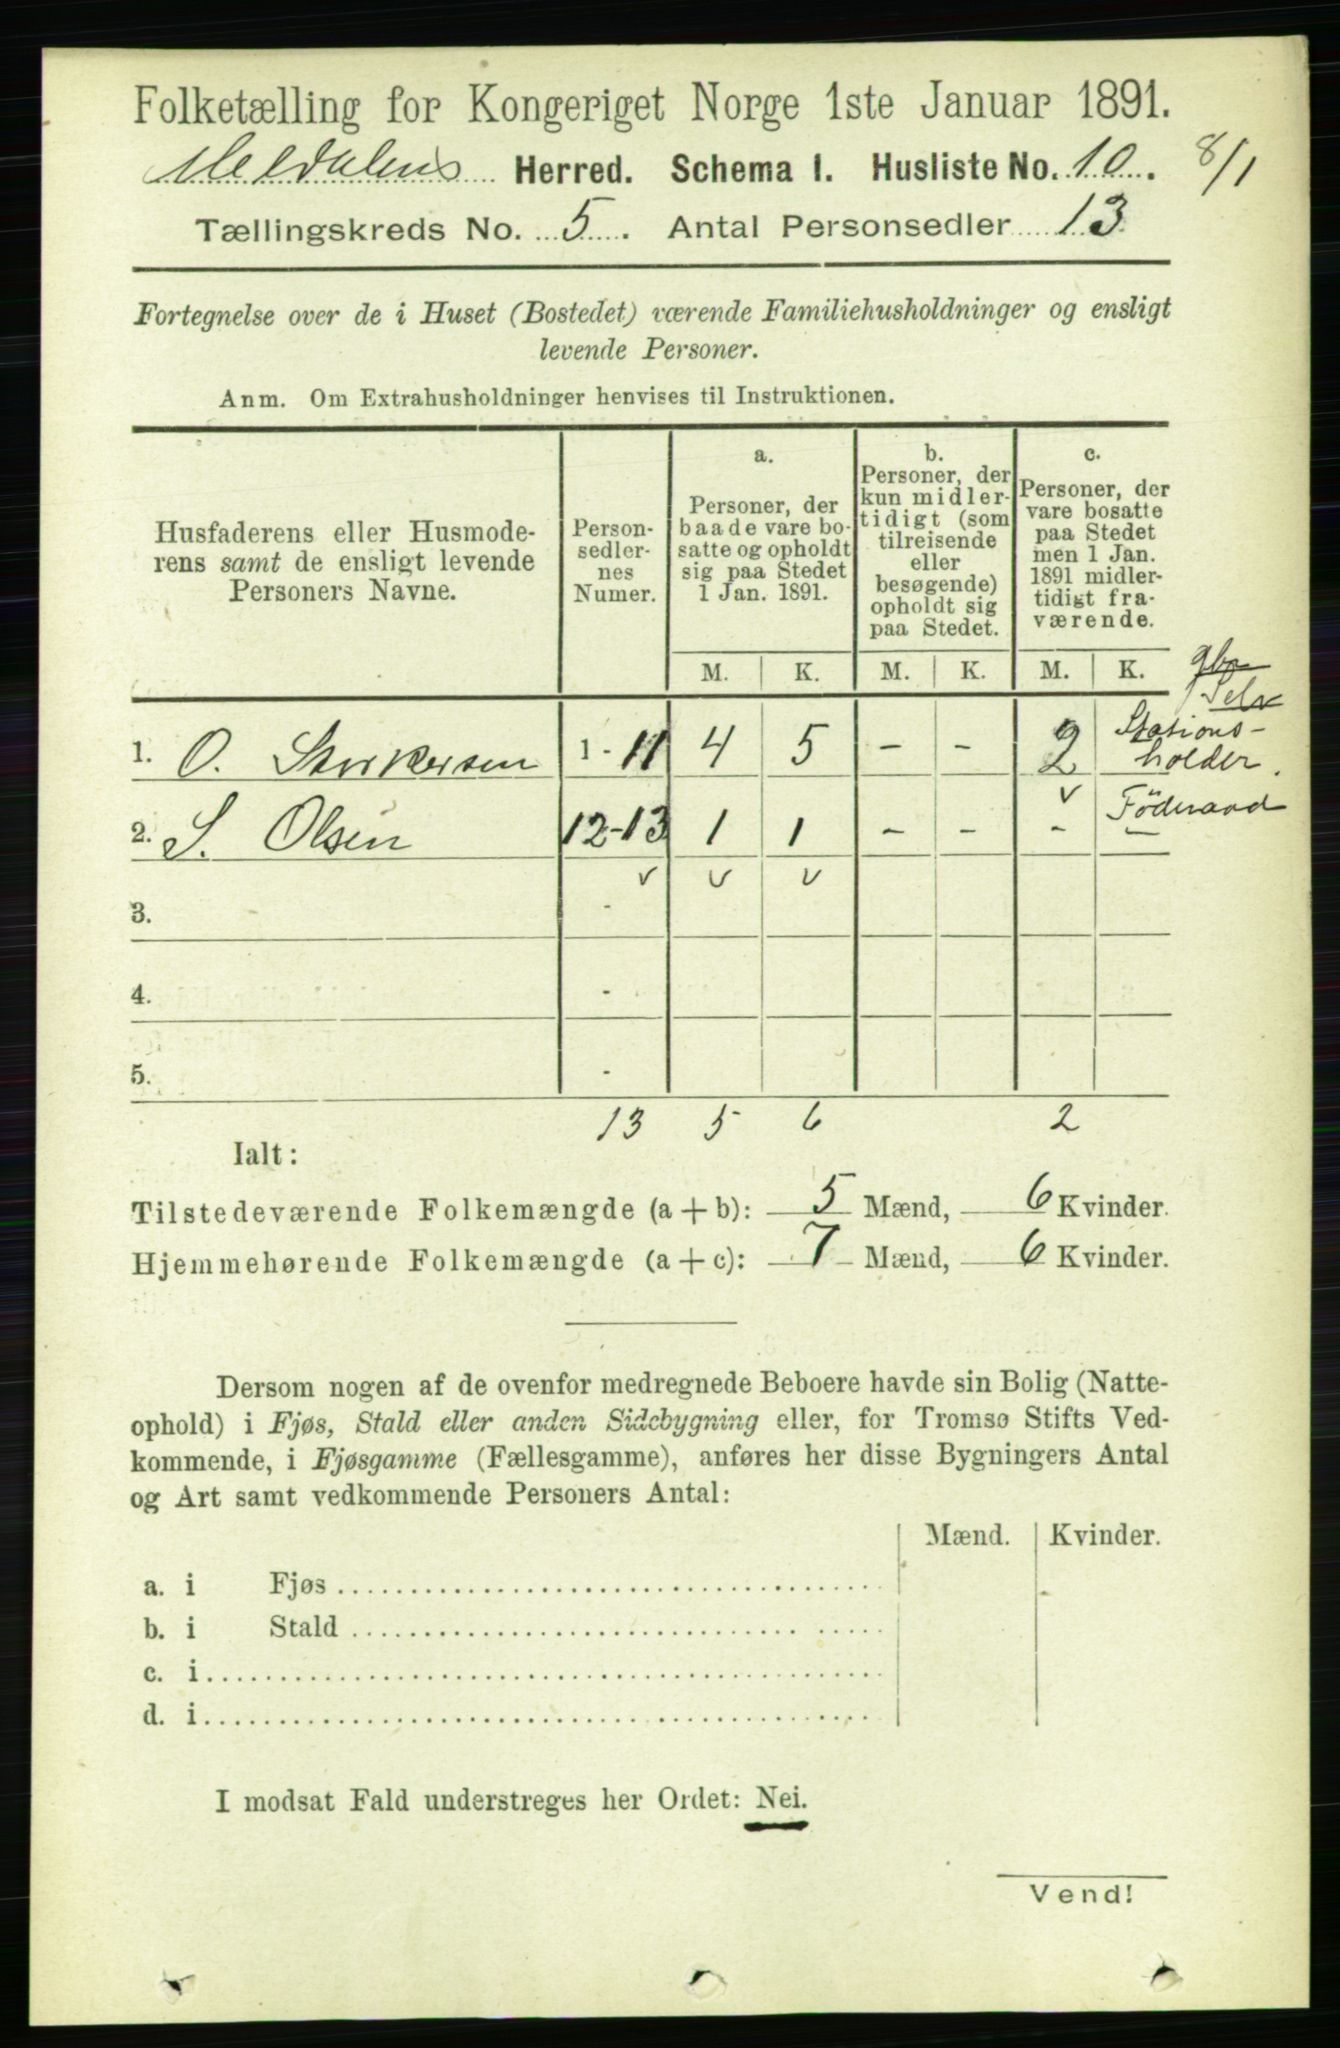 Folketælling for Kongeriget Norge 1ste Januar 1891.
Meldalens Herred. Schema 1. Husliste No. 10. 8/1
Tællingskreds No. 5. Antal Personsedler 13
Fortegnelse over de i Huset (Bostedet) værende Familiehusholdninger og ensligt
levende Personer.
Anm. Om Extrahusholdninger henvises til Instruktionen.
Husfaderens eller Husmode-
rens samt de ensligt levende
Personers Navne.
Person-
sedler-
nes
Numer.
a.
Personer, der
baade vare bo-
satte og opholdt
sig paa Stedet
1 Jan. 1891.
b.
Personer, der
kun midler-
tidigt (som
tilreisende
eller
besøgende)
opholdt sig
paa Stedet.
c.
Personer, der
vare bosatte
paa Stedet
men 1 Jan.
1891 midler-
tidigt fra-
værende.
M. K. M. K. M. K.
gbr
Selv
1. O. Størkersen 1-11 4 5 - - 2 Stations-
holder.
2. S. Olsen 12-13 1 1 - - - Föderaad
v v v v
3. -
4. -
5. -
13 5 6 2
Ialt:
Tilstedeværende Folkemængde (a + b): 5 Mænd, 6 Kvinder.
Hjemmehørende Folkemængde (a + c): 7 Mænd, 6 Kvinder.
Dersom nogen af de ovenfor medregnede Beboere havde sin Bolig (Natte-
ophold) i Fjøs, Stald eller anden Sidebygning eller, for Tromsø Stifts Ved-
kommende, i Fjøsgamme (Fællesgamme), anføres her disse Bygningers Antal
og Art samt vedkommende Personers Antal:
Mænd. Kvinder.
a. i Fjøs
b. i Stald
c. i
d. i
I modsat Fald understreges her Ordet: Nei.
Vend!